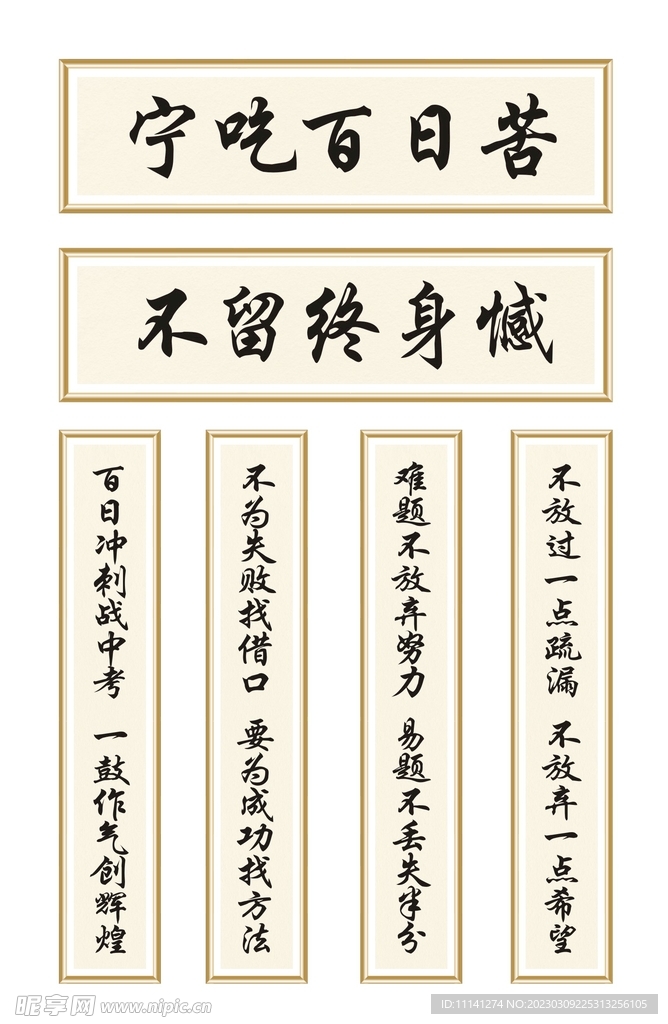 宁吃百日苦
不留终身憾
百日冲刺战中考 一鼓作气创辉煌
不为失败找借口 要为成功找方法
难题不放弃努力 易题不丢失半分
不放过一点疏漏 不放弃一点希望
昵享网 www.nipic.cn
ID:11141274 NO:20230309225313256105